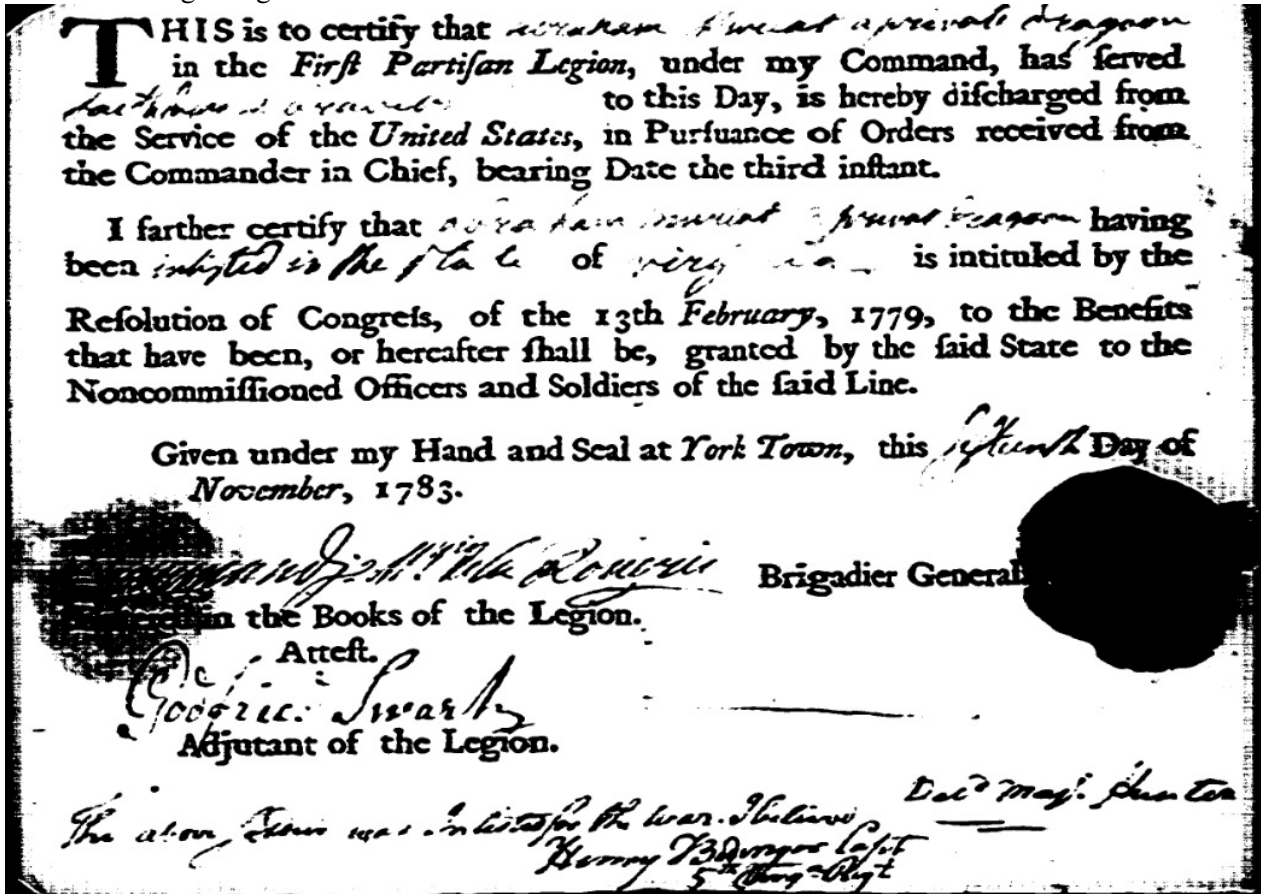 THIS is to certify that abraham a private dragoon
in the First Partisan Legion, under my Command, has served
to this Day, is hereby discharged from
the Service of the United States, in Pursuance of Orders received from
the Commander in Chief, bearing Date the third instant.
I farther certify that abraham private dragoon having
been inlisted in the state of virginia is intituled by the
Resolution of Congress, of the 13th February, 1779, to the Benefits
that have been, or hereafter shall be, granted by the said State to the
Noncommissioned Officers and Soldiers of the said Line.
Given under my Hand and Seal at York Town, this fifteenth Day of
November, 1783.
Brigadier General
in the Books of the Legion.
Attest.
Swartz
Adjutant of the Legion.
Maj. Hunter
The above was Inlisted for the War I believe
Henry Capt
5th Regt